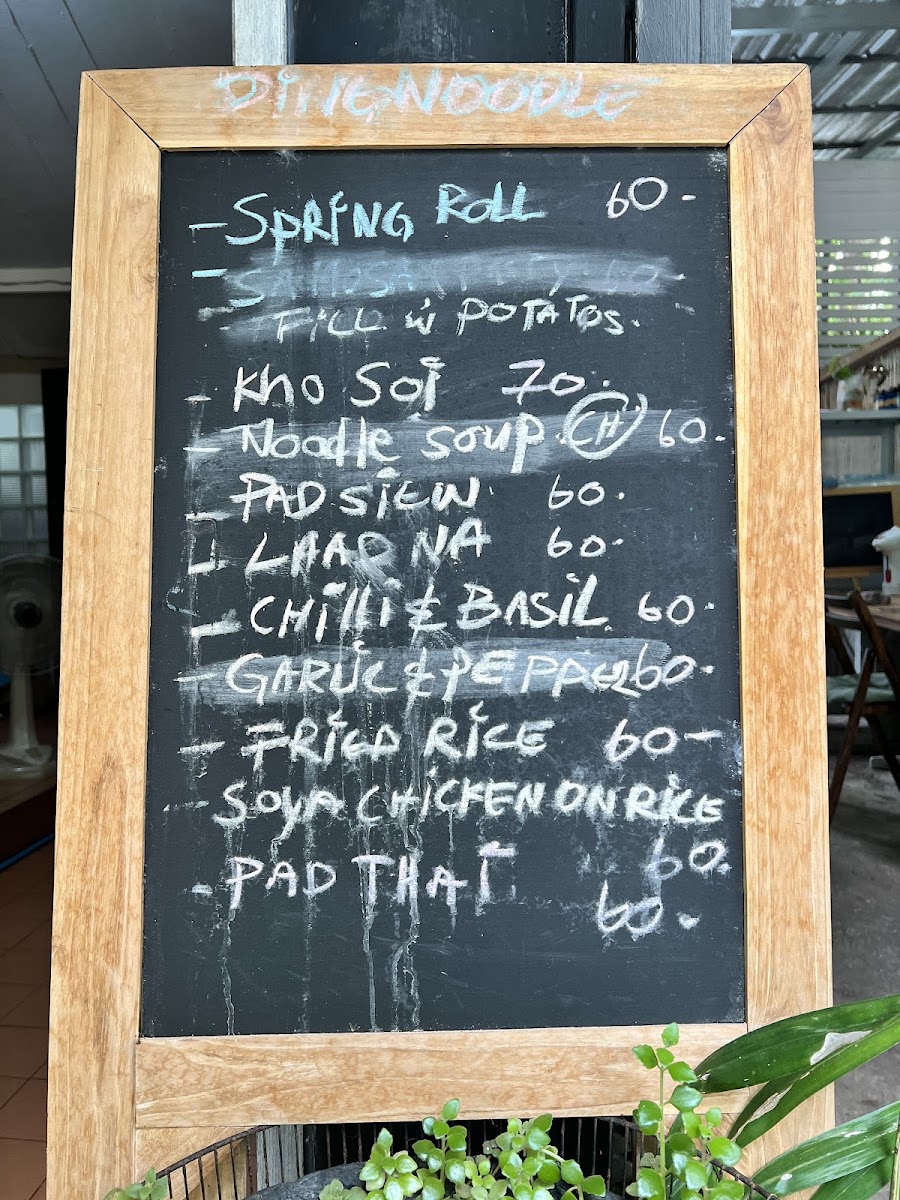 DINGNOODLE
- SPRING ROLL 60.-
- SAMOSA 60.-
- FILL W POTATOS.
- Kho Soi 70.-
- Noodle soup (CH) 60.-
- PAD SIEW 60.-
- LAAD NA 60.-
- CHilli & BASIL. 60.-
- GARLIC & PEPPER 60.-
- FRIED RICE 60-
- SOYA CHICKEN ON RICE
60.
- PAD THAI
60.-